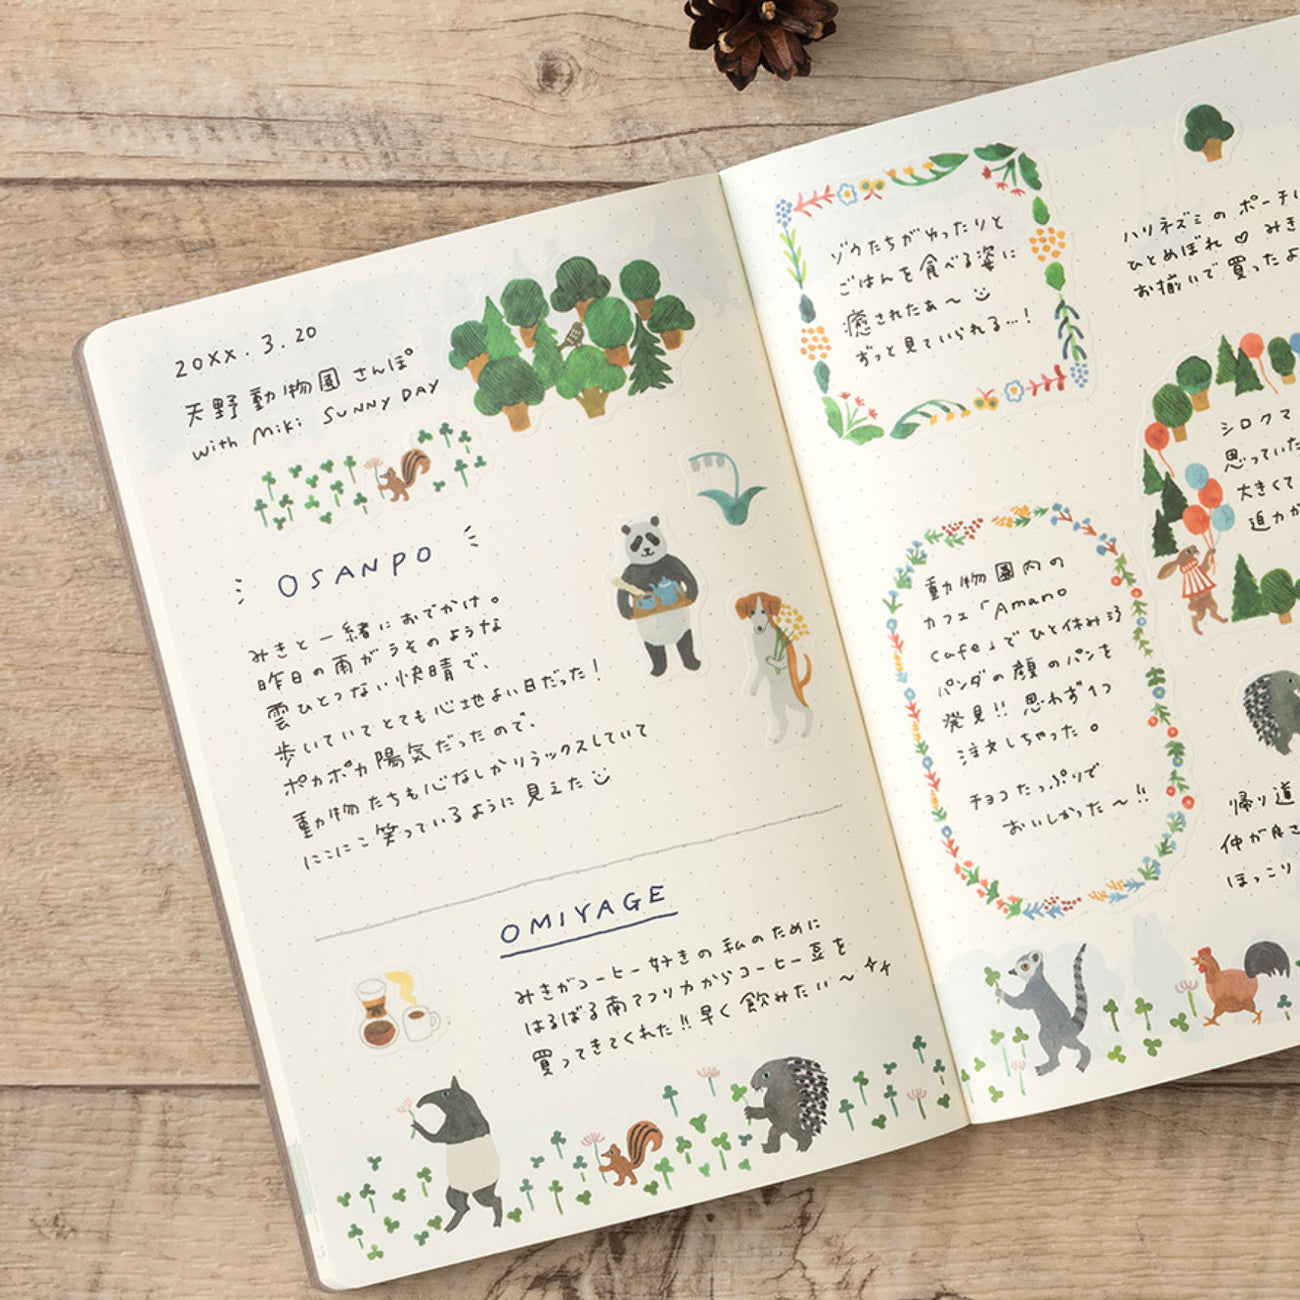 20XX.3.20
天野動物園さんぽ
with Miki SUNNY DAY
OSANPO
みきと一緒におでかけ。
昨日の雨がうそのような
雲ひとつない快晴で、
歩いていてとても心地よい日だった！
ポカポカ陽気だったので、
動物たちも心なしかリラックスしていて
にこにこ笑っているように見えた
OMIYAGE
みきがコーヒー好きの私のために
はるばる南アフリカからコーヒー豆を
買ってきてくれた!!早く飲みたい〜
ゾウたちがやったりと
ごはんを食べる姿に
癒されたぁ〜
ずっと見ていられる…！
動物園内の
カフェ「Amano
cafe」でひと休み
パンダの顔のパンを
発見!!思わず1つ
注文しちゃった。
チョコたっぷりで
おいしかった〜!!
ハリネズミのポーチに
ひとめぼれ♡みき
お揃いで買ったよ
シロクマ
思っていた
大きくて
迫力が
帰り道
仲が良さ
ほっこり